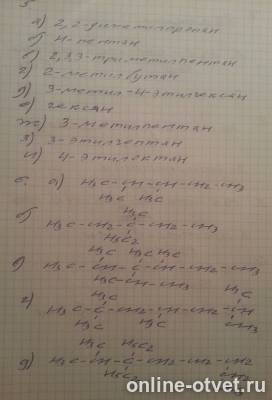 5
а) 2,2-диметилпропан
б) н-пентан
в) 2,3,3-триметилпентан
г) 2-метилбутан
д) 3-метил-4-этилгексан
е) гексан
ж) 3-метилпентан
з) 3-этилгептан
и) 4-этилоктан
6. а) H3C-CH-CH-CH2-CH3
H3C H3C
H3C
б H3C-CH2-C-CH2-CH3
H5C2
H3C H3C H3C
в) H3C-CH-C-CH-CH2-CH3
H3C-CH-CH3
H3C H3C
г) H3C-C-CH2-CH-CH2-CH
H3C H3C CH3
H3C H5C2
д) H3C-CH-C-CH2-CH2-CH2
H5C2 CH3
online-otvet.ru